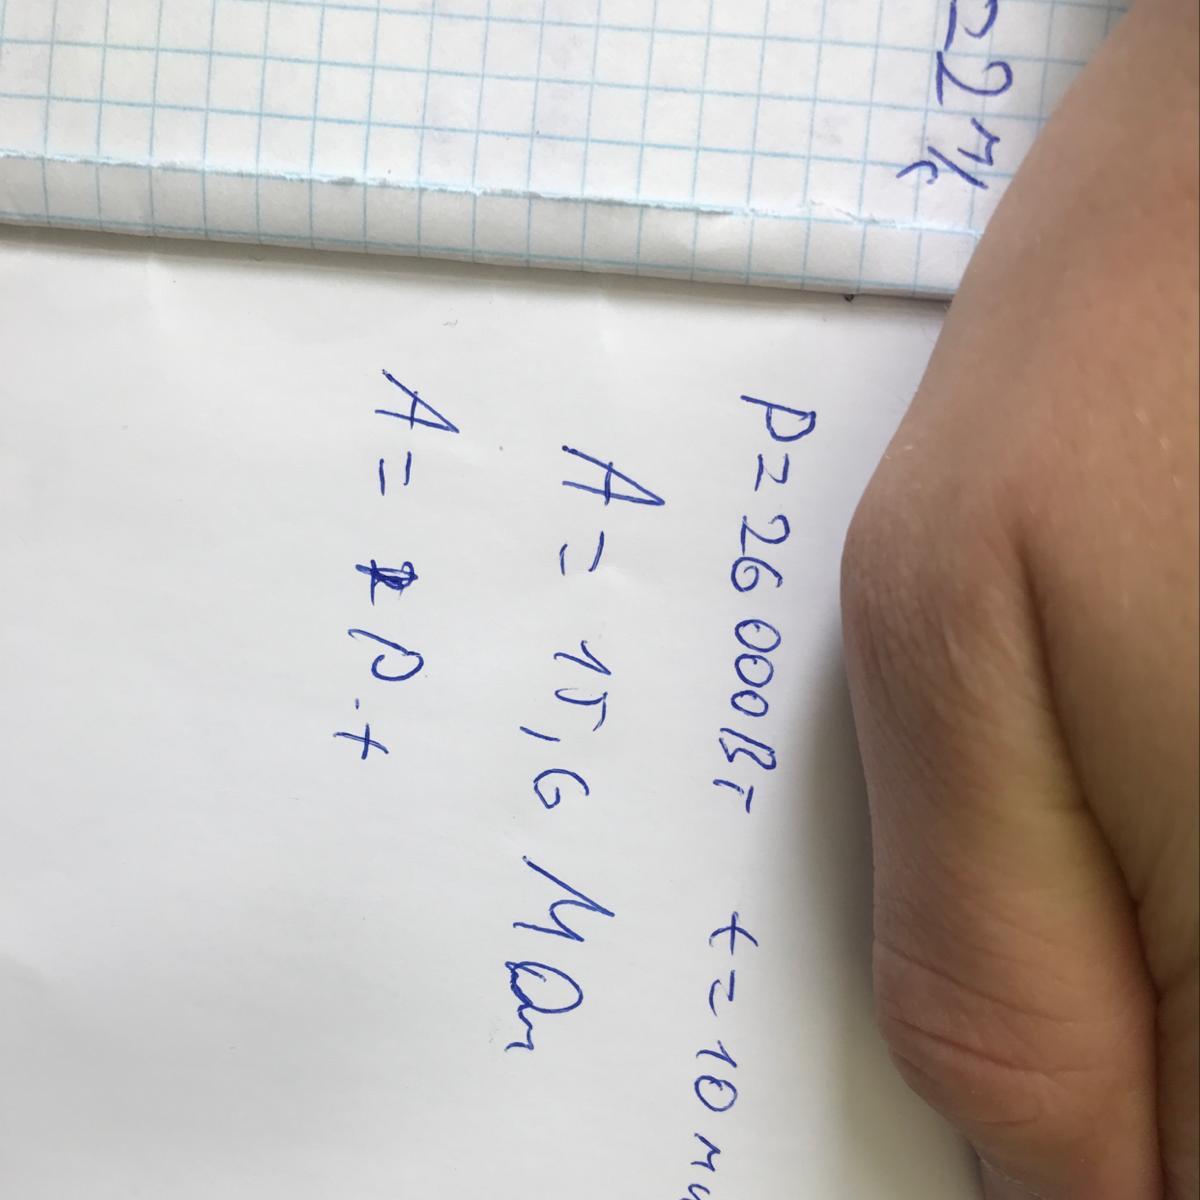 22 м/с
P = 26 000 Вт t = 10 м
A = 15,6 МДж
A = P · t